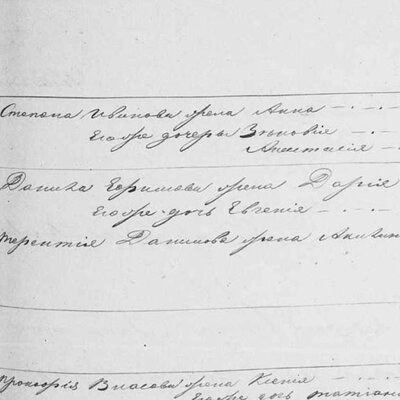 Степана Иванова жена Анна
Егоже дочери Зиновия
Анастасия
Данила Ефимова жена Дария
Егоже дочь Евгения
Терентия Данилова жена
Прокофия Власова жена Ксения
Егоже дочь Татиана